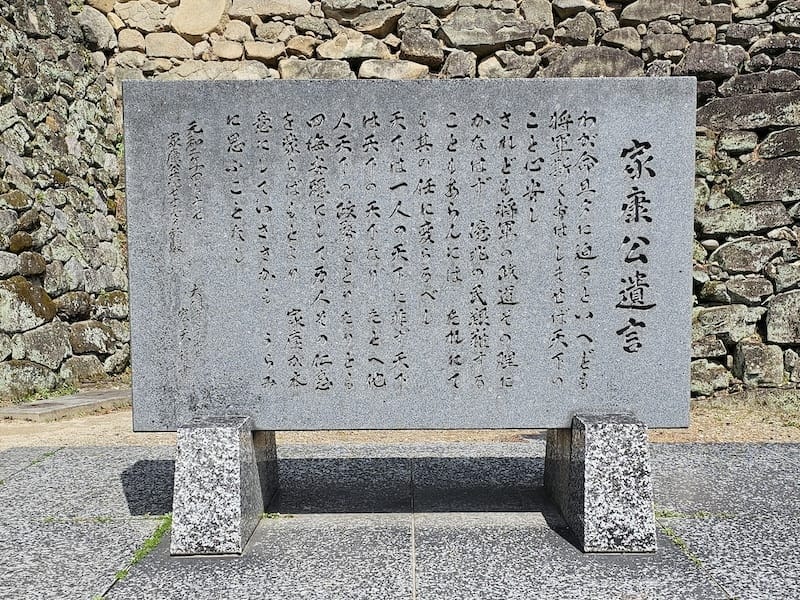 家康公遺言
わが命旦夕に迫るといへども
将軍斯く御座しませば天下の
こと心安し
されども将軍の政道その理に
かなはず 億兆の民艱難する
こともあらんには たれにても
其の任に変らるべし
天下は一人の天下に非ず 天下
は天下の天下なり たとへ他
人天下の政務をとりたりとも
四海安穏にして万人その仁恵
を蒙らばもとより 家康が本
意にしていささかも うらみ
に思ふことなし
元和二年四月十七日